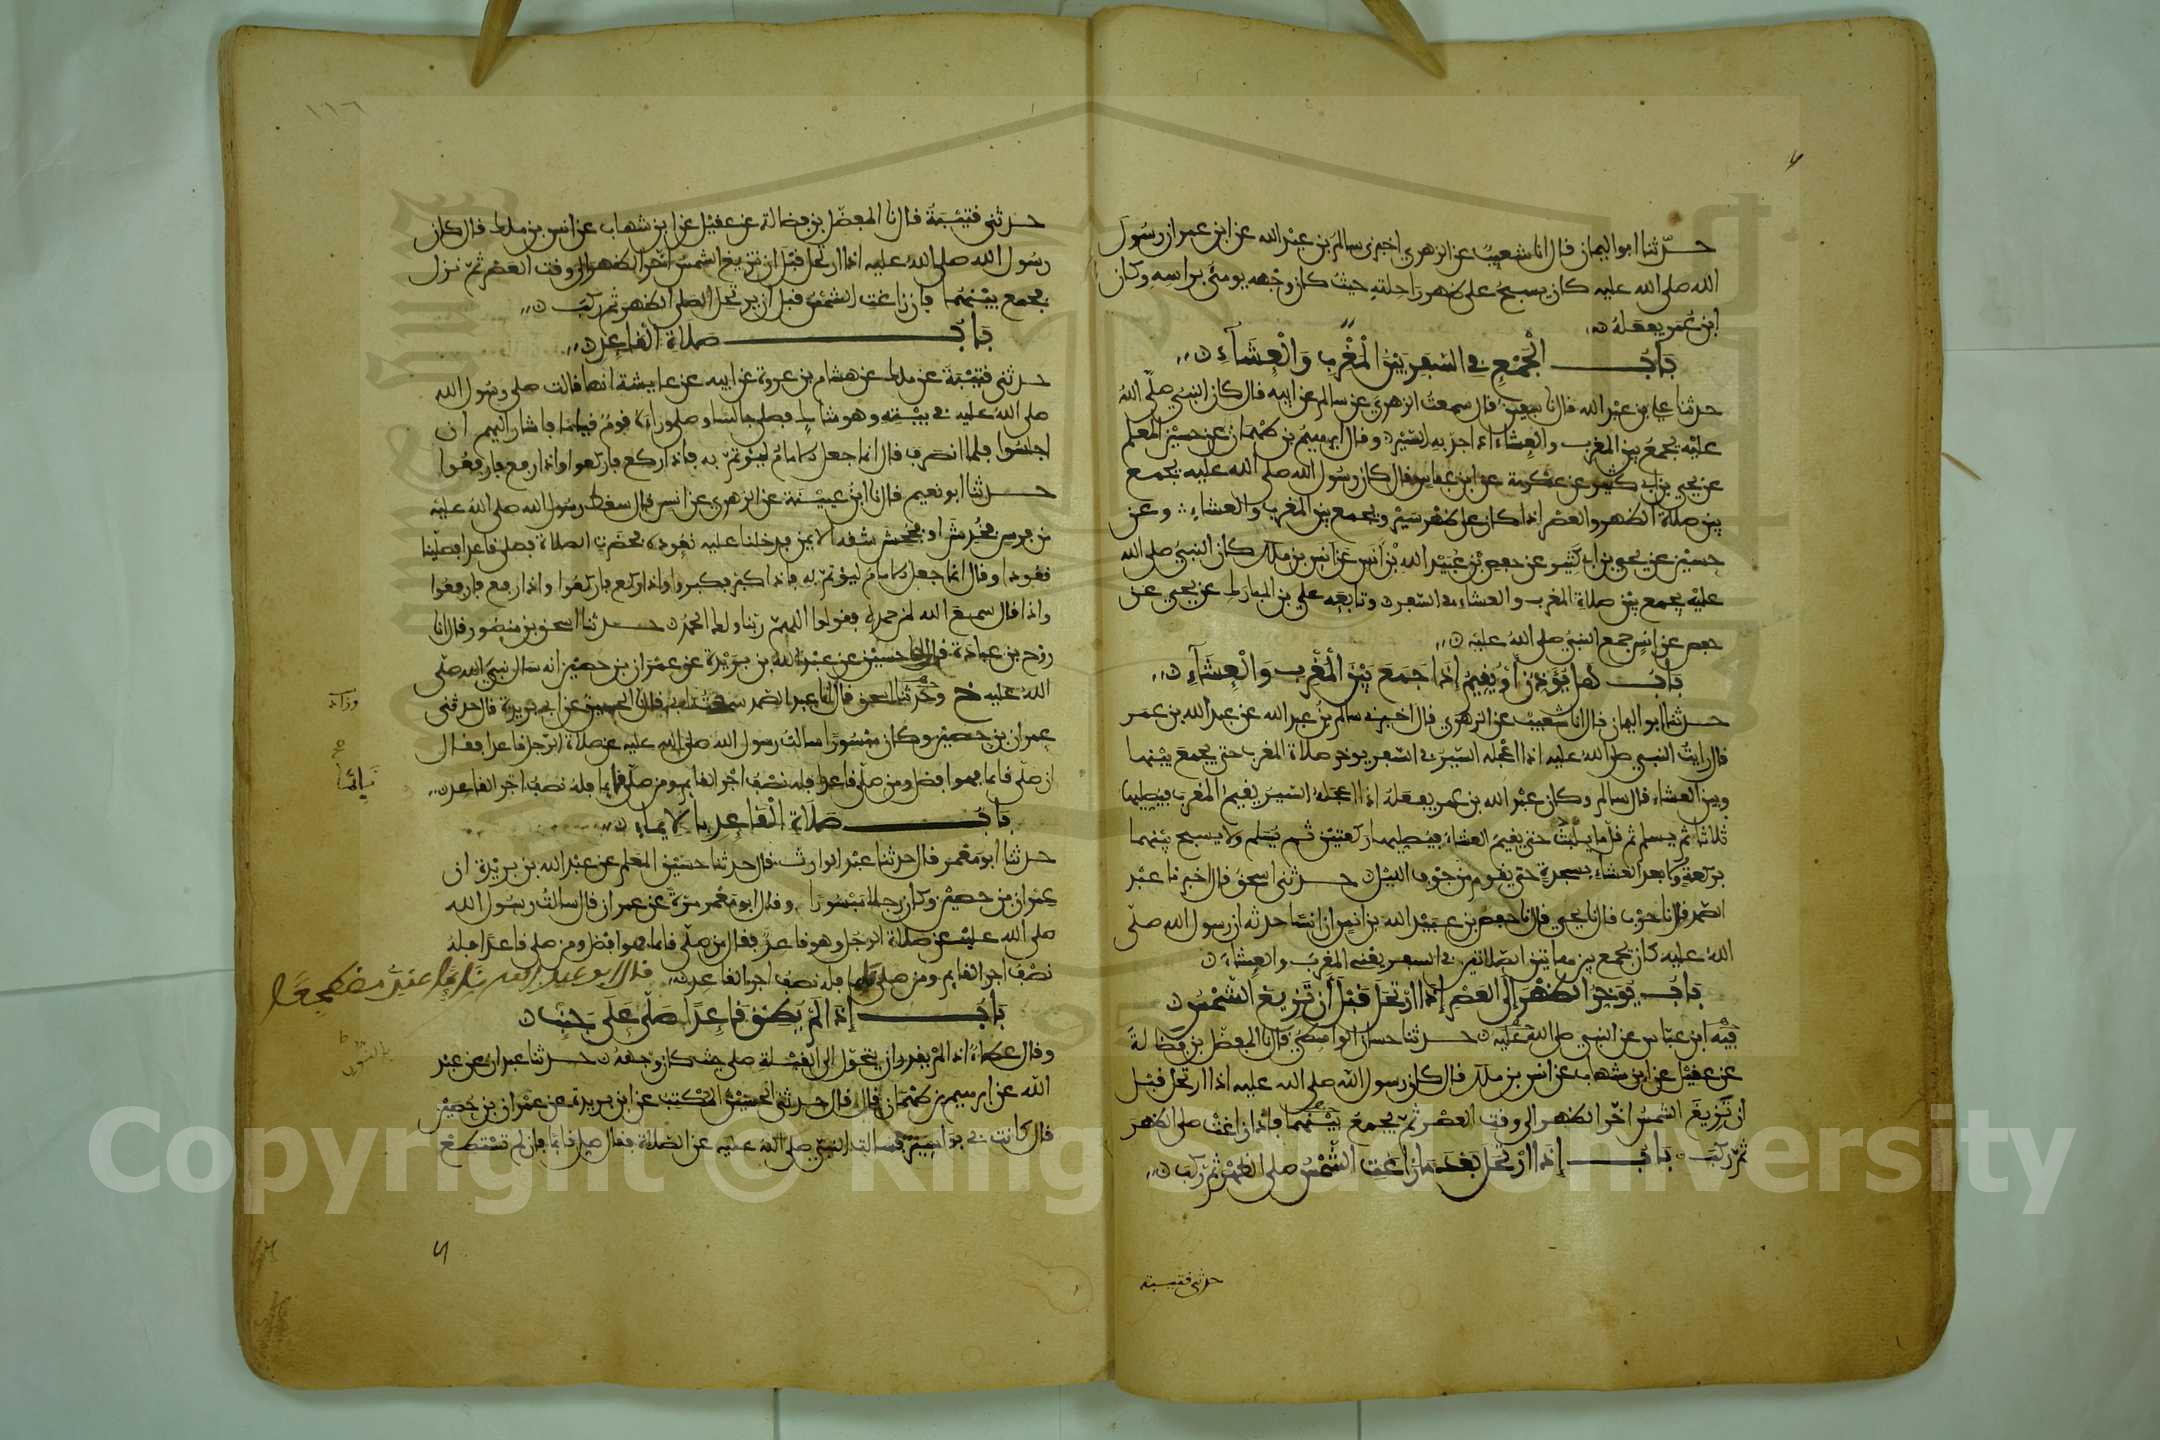 حدثنا ابو اليمان قال انا شعيب عن الزهري اخبرني سالم بن عبد الله عن ابن عمر ان رسول
الله صلى الله عليه كان يسبح على ظهر راحلته حيث كان وجهه يومئ براسه وكان
ابن عمر يفعله
باب الجمع في السفر بين المغرب والعشاء
حدثنا علي بن عبد الله قال نا سفين قال سمعت الزهري عن سالم عن ابيه قال كان النبي صلى الله
عليه يجمع بين المغرب والعشاء اذا جد به السير وقال ابرهيم بن طهمان عن حسين المعلم
عن يحيى بن ابي كثير عن عكرمة عن ابن عباس قال كان رسول الله صلى الله عليه يجمع
بين صلاة الظهر والعصر اذا كان على ظهر سير ويجمع بين المغرب والعشاء وعن
حسين عن يحيى بن ابي كثير عن حفص بن عبيد الله بن انس عن انس بن ملك كان النبي صلى الله
عليه يجمع بين صلاة المغرب والعشاء في السفر وتابعه علي بن المبارك عن يحيى عن
حفص عن انس جمع النبي صلى الله عليه
باب هل يؤذن أو يقيم إذا جمع بين المغرب والعشاء
حدثنا ابو اليمان قال انا شعيب عن الزهري قال اخبرني سالم بن عبد الله عن عبد الله بن عمر
قال رايت النبي صلى الله عليه اذا اعجله السير في السفر يوخر صلاة المغرب حتى يجمع بينهما
وبين العشاء قال سالم وكان عبد الله بن عمر يفعله اذا اعجله السير يقيم المغرب فيصليها
ثلاثا ثم يسلم ثم قلما يلبث حتى يقيم العشاء فيصليها ركعتين ثم يسلم ولا يسبح بينهما
بركعة ولا بعد العشاء بسجدة حتى يقوم من جوف الليل حدثني اسحق قال اخبرنا عبد
الصمد قال نا حرب قال نا يحيى قال نا حفص بن عبيد الله بن انس ان انسا حدثه ان رسول الله صلى
الله عليه كان يجمع بين هاتين الصلاتين في السفر يعني المغرب والعشاء
باب يوخر الظهر إلى العصر إذا ارتحل قبل أن تزيغ الشمس
فيه ابن عباس عن النبي صلى الله عليه حدثنا حسان الواسطي قال نا المفضل بن فضالة
عن عقيل عن ابن شهاب عن انس بن ملك قال كان رسول الله صلى الله عليه اذا ارتحل قبل
ان تزيغ الشمس اخر الظهر الى وقت العصر ثم يجمع بينهما فاذا زاغت صلى الظهر
ثم ركب باب إذا ارتحل بعد ما زاغت الشمس صلى الظهر ثم ركب
حدثني قتيبة
١١٦
حدثني قتيبة قال نا المفضل بن فضالة عن عقيل عن ابن شهاب عن انس بن ملك قال كان
رسول الله صلى الله عليه اذا ارتحل قبل ان تزيغ الشمس اخر الظهر الى وقت العصر ثم نزل
فجمع بينهما فان زاغت الشمس قبل ان يرتحل صلى الظهر ثم ركب
باب صلاة القاعد
حدثني قتيبة عن ملك عن هشام بن عروة عن ابيه عن عايشة انها قالت صلى رسول الله
صلى الله عليه في بيته وهو شاك فصلى جالسا وصلى وراءه قوم قياما فاشار اليهم ان
اجلسوا فلما انصرف قال انما جعل الامام ليؤتم به فاذا ركع فاركعوا واذا رفع فارفعوا
حدثنا ابو نعيم قال نا ابن عيينة عن الزهري عن انس قال سقط رسول الله صلى الله عليه
من فرس فخدش او فجحش شقه الايمن فدخلنا عليه نعوده فحضرت الصلاة فصلى قاعدا فصلينا
قعودا وقال انما جعل الامام ليؤتم به فاذا كبر فكبروا واذا ركع فاركعوا واذا رفع فارفعوا
واذا قال سمع الله لمن حمده فقولوا اللهم ربنا ولك الحمد حدثنا اسحق بن منصور قال انا
روح بن عبادة قال انا حسين عن عبد الله بن بريدة عن عمران بن حصين انه سال نبي الله صلى
الله عليه ح وحدثنا اسحق قال انا عبد الصمد سمعت ابي قال نا الحسين عن ابن بريدة قال حدثني
عمران بن حصين وكان مبسورا سالت رسول الله صلى الله عليه عن صلاة الرجل قاعدا فقال
ان صلى قائما فهو افضل ومن صلى قاعدا فله نصف اجر القايم ومن صلى نايما فله نصف اجر القاعد
باب صلاة القاعد بالايماء
حدثنا ابو معمر قال حدثنا عبد الوارث قال حدثنا حسين المعلم عن عبد الله بن بريدة ان
عمران بن حصين وكان رجلا مبسورا وقال ابو معمر مرة عن عمران قال سالت رسول الله
صلى الله عليه عن صلاة الرجل وهو قاعد فقال من صلى قائما فهو افضل ومن صلى قاعدا فله
نصف اجر القايم ومن صلى نايما فله نصف اجر القاعد قال ابو عبد الله نايما عندي مضطجعا
باب إذا لم يطق قاعدا صلى على جنب
وقال عطاء اذا لم يقدر ان يتحول الى القبلة صلى حيث كان وجهه حدثنا عبدان عن عبد
الله عن ابرهيم بن طهمان قال حدثني الحسين المكتب عن ابن بريدة عن عمران بن حصين
قال كانت بي بواسير فسالت النبي صلى الله عليه عن الصلاة فقال صل قائما فان لم تستطع
Copyright © King Saud University